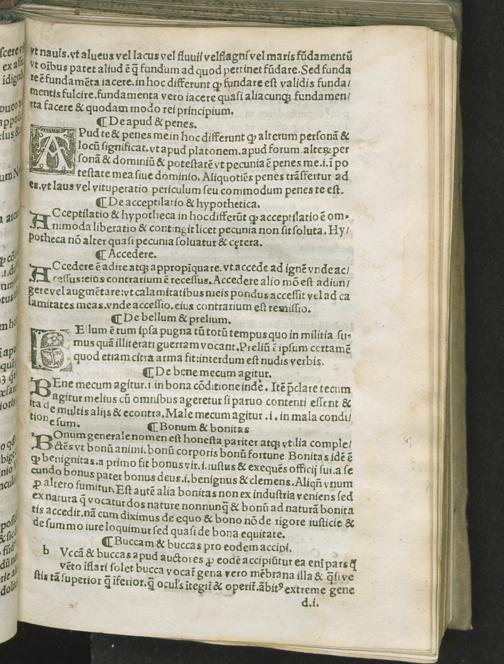 vt nauis. vt alueus vel lacus vel fluuii vel stagni vel maris fūdamentū
vt oībus patet aliud ē q̄ fundum ad quod pertinet fūdare. Sed funda
re ē fundamēta iacere. in hoc differunt ꝙ fundare est validis funda/
mentis fulcire. fundamenta vero iacere quasi aliacunqꝫ fundamen/
ta facere & quodam modo rei principium.
¶ De apud & penes.
APud te & penes me in hoc differunt ꝙ alterum personā &
locū significat. vt apud platonem. apud forum. alteꝝ per
sonā & dominiū & potestatē vt pecunia ē penes me. i. ī po
testate mea siue dominio. Aliquotiēs penes trāsfertur ad
es. vt laus vel vituperatio periculum seu commodum penes te est.
¶ De acceptilatio & hypothetica.
ACceptilatio & hypotheca in hoc differūt ꝙ acceptilatio ē om-
nimoda liberatio & contingit licet pecunia non sit soluta. Hy/
potheca nō alter quasi pecunia soluatur & cętera.
¶ Accedere.
ACcedere ē adire atqꝫ appropīquare. vt accede ad ignē vnde ac/
cessus: eius contrarium ē recessus. Accedere alio mō est adiun/
gere vel augmētare: vt calamitatibus meis pondus accessit vel ad ca
lamitates meas. vnde accessio. eius contrarium est remissio.
¶ De bellum & prelium.
BEllum ē tum ipsa pugna tū totū tempus quo in militia su-
mus quā illiterati guerram vocant. Preliū ē ipsum certamē
quod etiam citra arma fit: interdum est nudis verbis.
¶ De bene mecum agitur.
BEne mecum agitur. i. in bona cōditione indē. Itē p̄clare tecum
agitur melius cū omnibus ageretur si paruo contenti essent &
ita de multis alijs & econtra. Male mecum agitur .i. in mala condi/
tione sum.
¶ Bonum & bonitas
BOnum generale nomen est honesta pariter atqꝫ vtilia comple/
ctēs vt bonū animi. bonū corporis bonū fortune Bonitas idē ē
ꝙ benignitas. a primo fit bonus vir. i. iustus & exequēs officij sui. a se
cundo bonus pater bonus deus. i. benignus & clemens. Aliqñ vnum
ꝓ altero sumitur. Est autē alia bonitas non ex industria veniens sed
ex natura q̄ vocatur dos nature nonnunq̄ & bonū ad naturā bonita
tis accedit. nā cum diximus de equo & bono nō de rigore iusticie &
de summo iure loquimur sed quasi de bona equitate.
¶ Buccam & buccas pro eodem accipi.
b Vccā & buccas apud auctores ꝓ eodē accipiūtur ea enī pars q̄
vēto iflari solet bucca vocat̄ gena vero mēbrana illa & q̄si ve
stis tā superior q̄ iferior. q̄ ocul's itegit̄ & operit̄. ābitꝰ extreme gene
d.i.